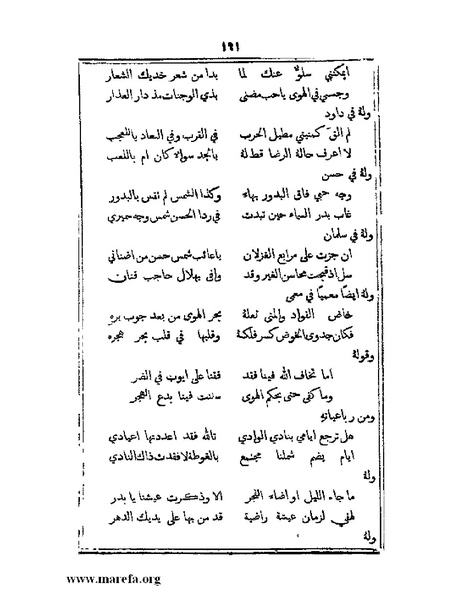 ١٢١
ايمكنني سلوٌ عنك لما بدا من شعر خديك الشعار
وجسمي في الهوى ياحب مضنى بذي الوجنات مذ دار العذار
ولهُ في داود
لم التقَ كميتي مطيل الحرب في القرب وفي البعاد ياللعجب
لا اعرف حالة الرضا قط لهُ بالجد سوالهُ كان ام باللعب
ولهُ في حسن
وجه حبي فاق البدور بهاء وكذا الشمس لم تقس بالبدور
غاب بدر السماء حين تبدت في ردا الحسن شمس وجه
ولهُ في سلمان
ان جزت على مرابع الغزلان ياعاتب شمس حسن من اضناني
سل اذ محاسن الغير وقد وافى بهلال حاجب فتان
ولهُ ايضًا معميًا في معمى
خاض الفواد والمنى ثعلة بحر الهوى من بعد جوب بره
فكان جدوى الخوض كسر فلكهُ وقلبها في قلب بحر هجره
وقولهُ
اما تخاف الله فينا فقد فقنا على ايوب في الضر
وما كفى حتى بحكم الهوى سننت فينا بدع الهجر
ومن رباعياتهِ
هل ترجع ايامي بنادي الوادي تالله فقد اعددتها اعيادي
ايام يضم شملنا مجتمع بالغوطة لا فقدت ذاك النادي
ولهُ
ما جاء الليل او اضاء الفجر الا وذكرت عيشنا يا بدر
لهفي لزمان عيشة راضية قد من بها على يديك الدهر
ولهُ
www.marefa.org